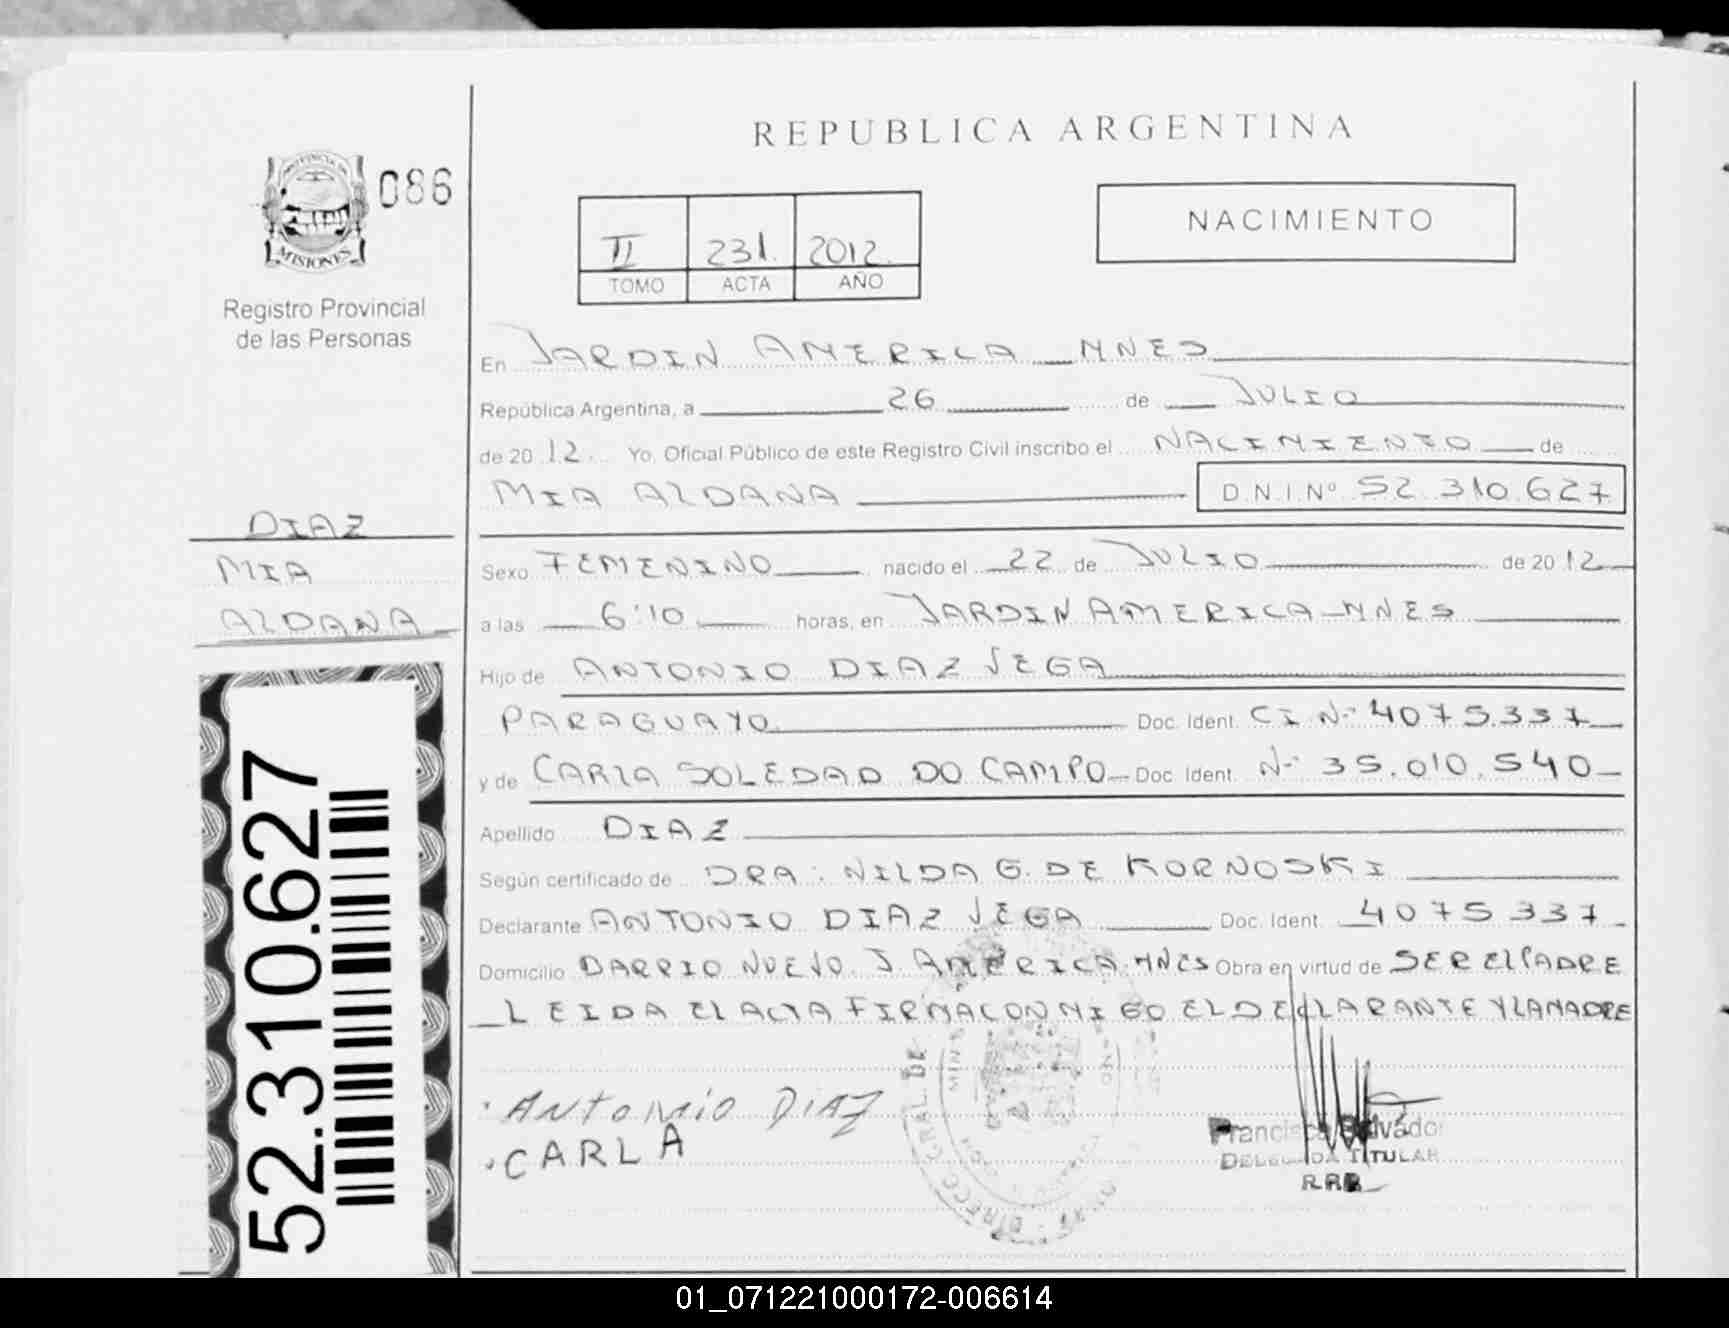 REPUBLICA ARGENTINA
PROVINCIA DE
MISIONES
086
Registro Provincial
de las Personas
II 231. 2012.
TOMO ACTA AÑO
NACIMIENTO
En JARDIN AMERICA MNES
República Argentina, a 26 de JULIO
de 2012. Yo, Oficial Público de este Registro Civil inscribo el NACIMIENTO de
MIA ALDANA D.N.I.Nº 52.310.627
DIAZ
MIA
ALDANA
Sexo FEMENINO nacido el 22 de JULIO de 2012
a las 6:10 horas, en JARDIN AMERICA-MNES
Hijo de ANTONIO DIAZ VEGA
PARAGUAYO Doc. Ident. CI Nº 4075.337
y de CARLA SOLEDAD DO CAMPO Doc. Ident. Nº 35.010.540
Apellido DIAZ
Según certificado de DRA: NILDA G. DE KORNOSKI
Declarante ANTONIO DIAZ VEGA Doc. Ident. 4075337
Domicilio BARRIO NUEVO. J AMERICA. MNES Obra en virtud de SER EL PADRE
LEIDA EL ACTA FIRMA CONMIGO EL DECLARANTE Y LA MADRE
ANTONIO DIAZ
CARLA
Francisca Salvador
DELEGADA TITULAR
52.310.627
01_071221000172-006614